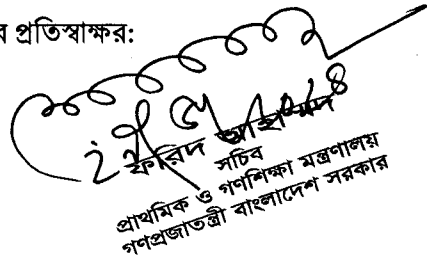 প্রতিস্বাক্ষর:
ফরিদ আহাম্মদ
সচিব
প্রাথমিক ও গণশিক্ষা মন্ত্রণালয়
গণপ্রজাতন্ত্রী বাংলাদেশ সরকার